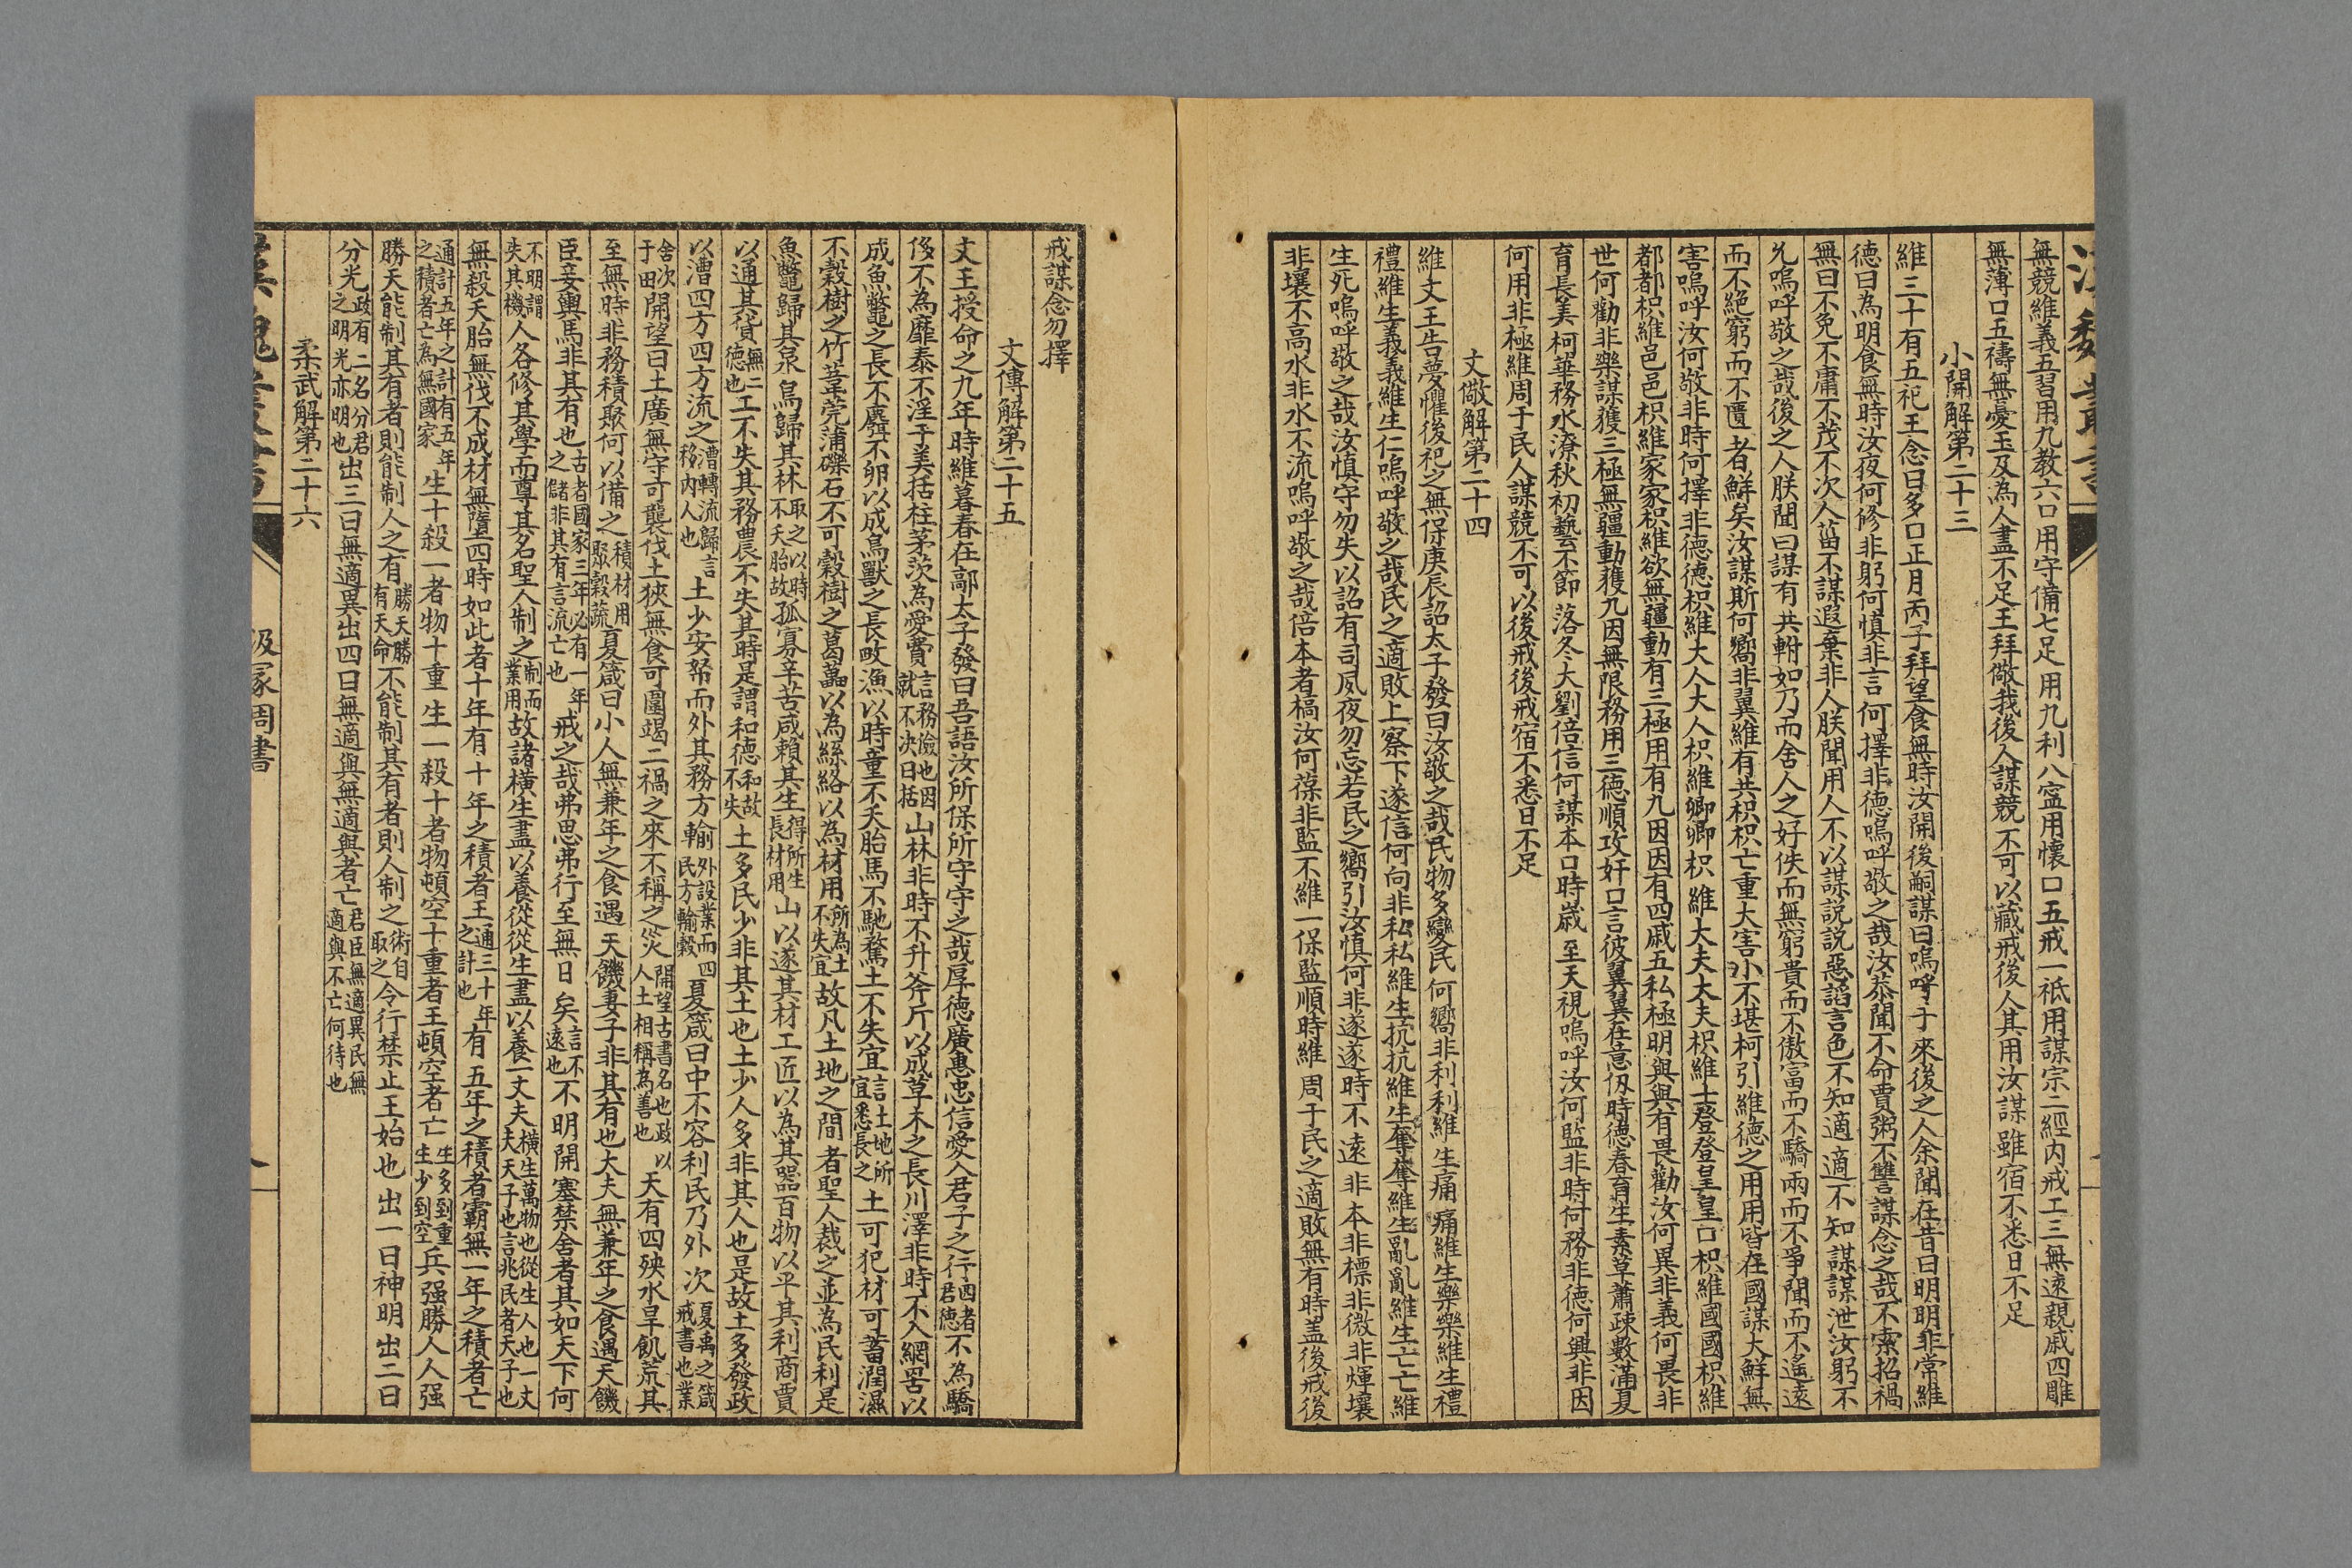 無競維義五習用九教六口用守備七足用九利八寍用懷口五戒一祗用謀宗二經内戒工三無遠親戚四雕
無薄口五禱無憂玉及為人盡不足王拜儆我後人謀競不可以藏戒後人其用汝謀雖宿不悉日不足
小開解第二十三
維三十有五祀王念曰多口正月丙子拜望食無時汝開後嗣謀曰嗚呼于來後之人余聞在昔曰明明非常維
德曰為明食無時汝夜何修非躬何慎非言何擇非德嗚呼敬之哉汝恭聞不命賈粥不讐謀念之哉不索招禍
無曰不免不庸不茂不次人菑不謀遐棄非人朕聞用人不以謀説説惡諂言色不知適適不知謀謀泄汝躬不
允嗚呼敬之哉後之人朕聞曰謀有共軵如乃而舍人之好佚而無窮貴而不傲富而不驕兩而不爭聞而不遙遠
而不絕窮而不匱者鮮矣汝謀斯何嚮非翼維有共枳枳亡重大害小不堪柯引維德之用用皆在國謀大鮮無
害嗚呼汝何敬非時何擇非德德枳維大人大人枳維卿卿枳維大夫大夫枳維士登登皇皇口枳維國國枳維
都都枳維邑邑枳維家家枳維欲無疆動有三極用有九因因有四戚五私極明與與有畏勸汝何異非義何畏非
世何勸非樂謀獲三極無疆動獲九因無限務用三德順攻奸口言彼翼翼在意仭時德春育生素草蕭疎數滿夏
育長美柯華務水潦秋初藝不節落冬大劉倍信何謀本口時嵗至天視嗚呼汝何監非時何務非德何興非因
何用非極維周于民人謀競不可以後戒後戒宿不悉日不足
文儆解第二十四
維文王告夢懼後祀之無保庚辰詔太子發曰汝敬之哉民物多變民何嚮非利利維生痛痛維生樂樂維生禮
禮維生義義維生仁嗚呼敬之哉民之適敗上察下遂信何向非私私維生抗抗維生奪奪維生亂亂維生亡亡維
生死嗚呼敬之哉汝慎守勿失以詔有司夙夜勿忘若民之嚮引汝慎何非遂遂時不遠非本非標非微非煇壤
非壤不高水非水不流嗚呼敬之哉倍本者槁汝何葆非監不維一保監順時維周于民之適敗無有時盖後戒後
戒謀念勿擇
文傳解第二十五
文王授命之九年時維暮春在鄗太子發曰吾語汝所保所守守之哉厚德廣惠忠信愛人君子之行四者君德不為驕
侈不為靡泰不淫于美括柱茅茨為愛費言務儉也因就不决曰括山林非時不升斧斤以成草木之長川澤非時不入網罟以
成魚鼈之長不麛不卵以成鳥獸之長畋漁以時童不夭胎馬不馳騖土不失宜言土地所宜悉長之土可犯材可蓄潤濕
不穀樹之竹葦莞蒲礫石不可穀樹之葛藟以為絺綌以為材用所為土不失宜故凡土地之間者聖人裁之並為民利是
魚鼈歸其泉鳥歸其林取之以時不夭胎故孤寡辛苦咸賴其生得所生長材用山以遂其材工匠以為其器百物以平其利商賈
以通其貨無二德也工不失其務農不失其時是謂和德和故不失土多民少非其土也土少人多非其人也是故土多發政
以漕四方四方流之漕轉流歸言移内人也土少安帑而外其務方輸外設業而四民方輸穀夏箴曰中不容利民乃外次夏禹之箴戒書也業
舍次于田開望曰土廣無守可襲伐土狹無食可圍竭二禍之來不稱之災開望古書名也政以人土相稱為善也天有四殃水旱飢荒其
至無時非務積聚何以備之積材用聚穀蔬夏箴曰小人無兼年之食遇天饑妻子非其有也大夫無兼年之食遇天饑
臣妾輿馬非其有也古者國家三年必有一年之儲非其有言流亡也戒之哉弗思弗行至無日矣言不遠也不明開塞禁舍者其如天下何
不明謂失其機人各修其學而尊其名聖人制之制而業用故諸橫生盡以養從從生盡以養一丈夫橫生萬物也從生人也一丈夫天子也言兆民者天子也
無殺夭胎無伐不成材無墮四時如此者十年有十年之積者王通三十年之計也有五年之積者霸無一年之積者亡
通計五年之計有五年之積者亡為無國家生十殺一者物十重生一殺十者物頓空十重者王頓空者亡生多到重生少到空兵强勝人人强
勝天能制其有者則能制人之有勝天勝有天命不能制其有者則人制之術自取之令行禁止王始也出一曰神明出二曰
分光政有二名分君之明光亦明也出三曰無適異出四曰無適與無適與者亡君臣無適異民無適與不亡何待也
柔武解第二十六
汲冢周書